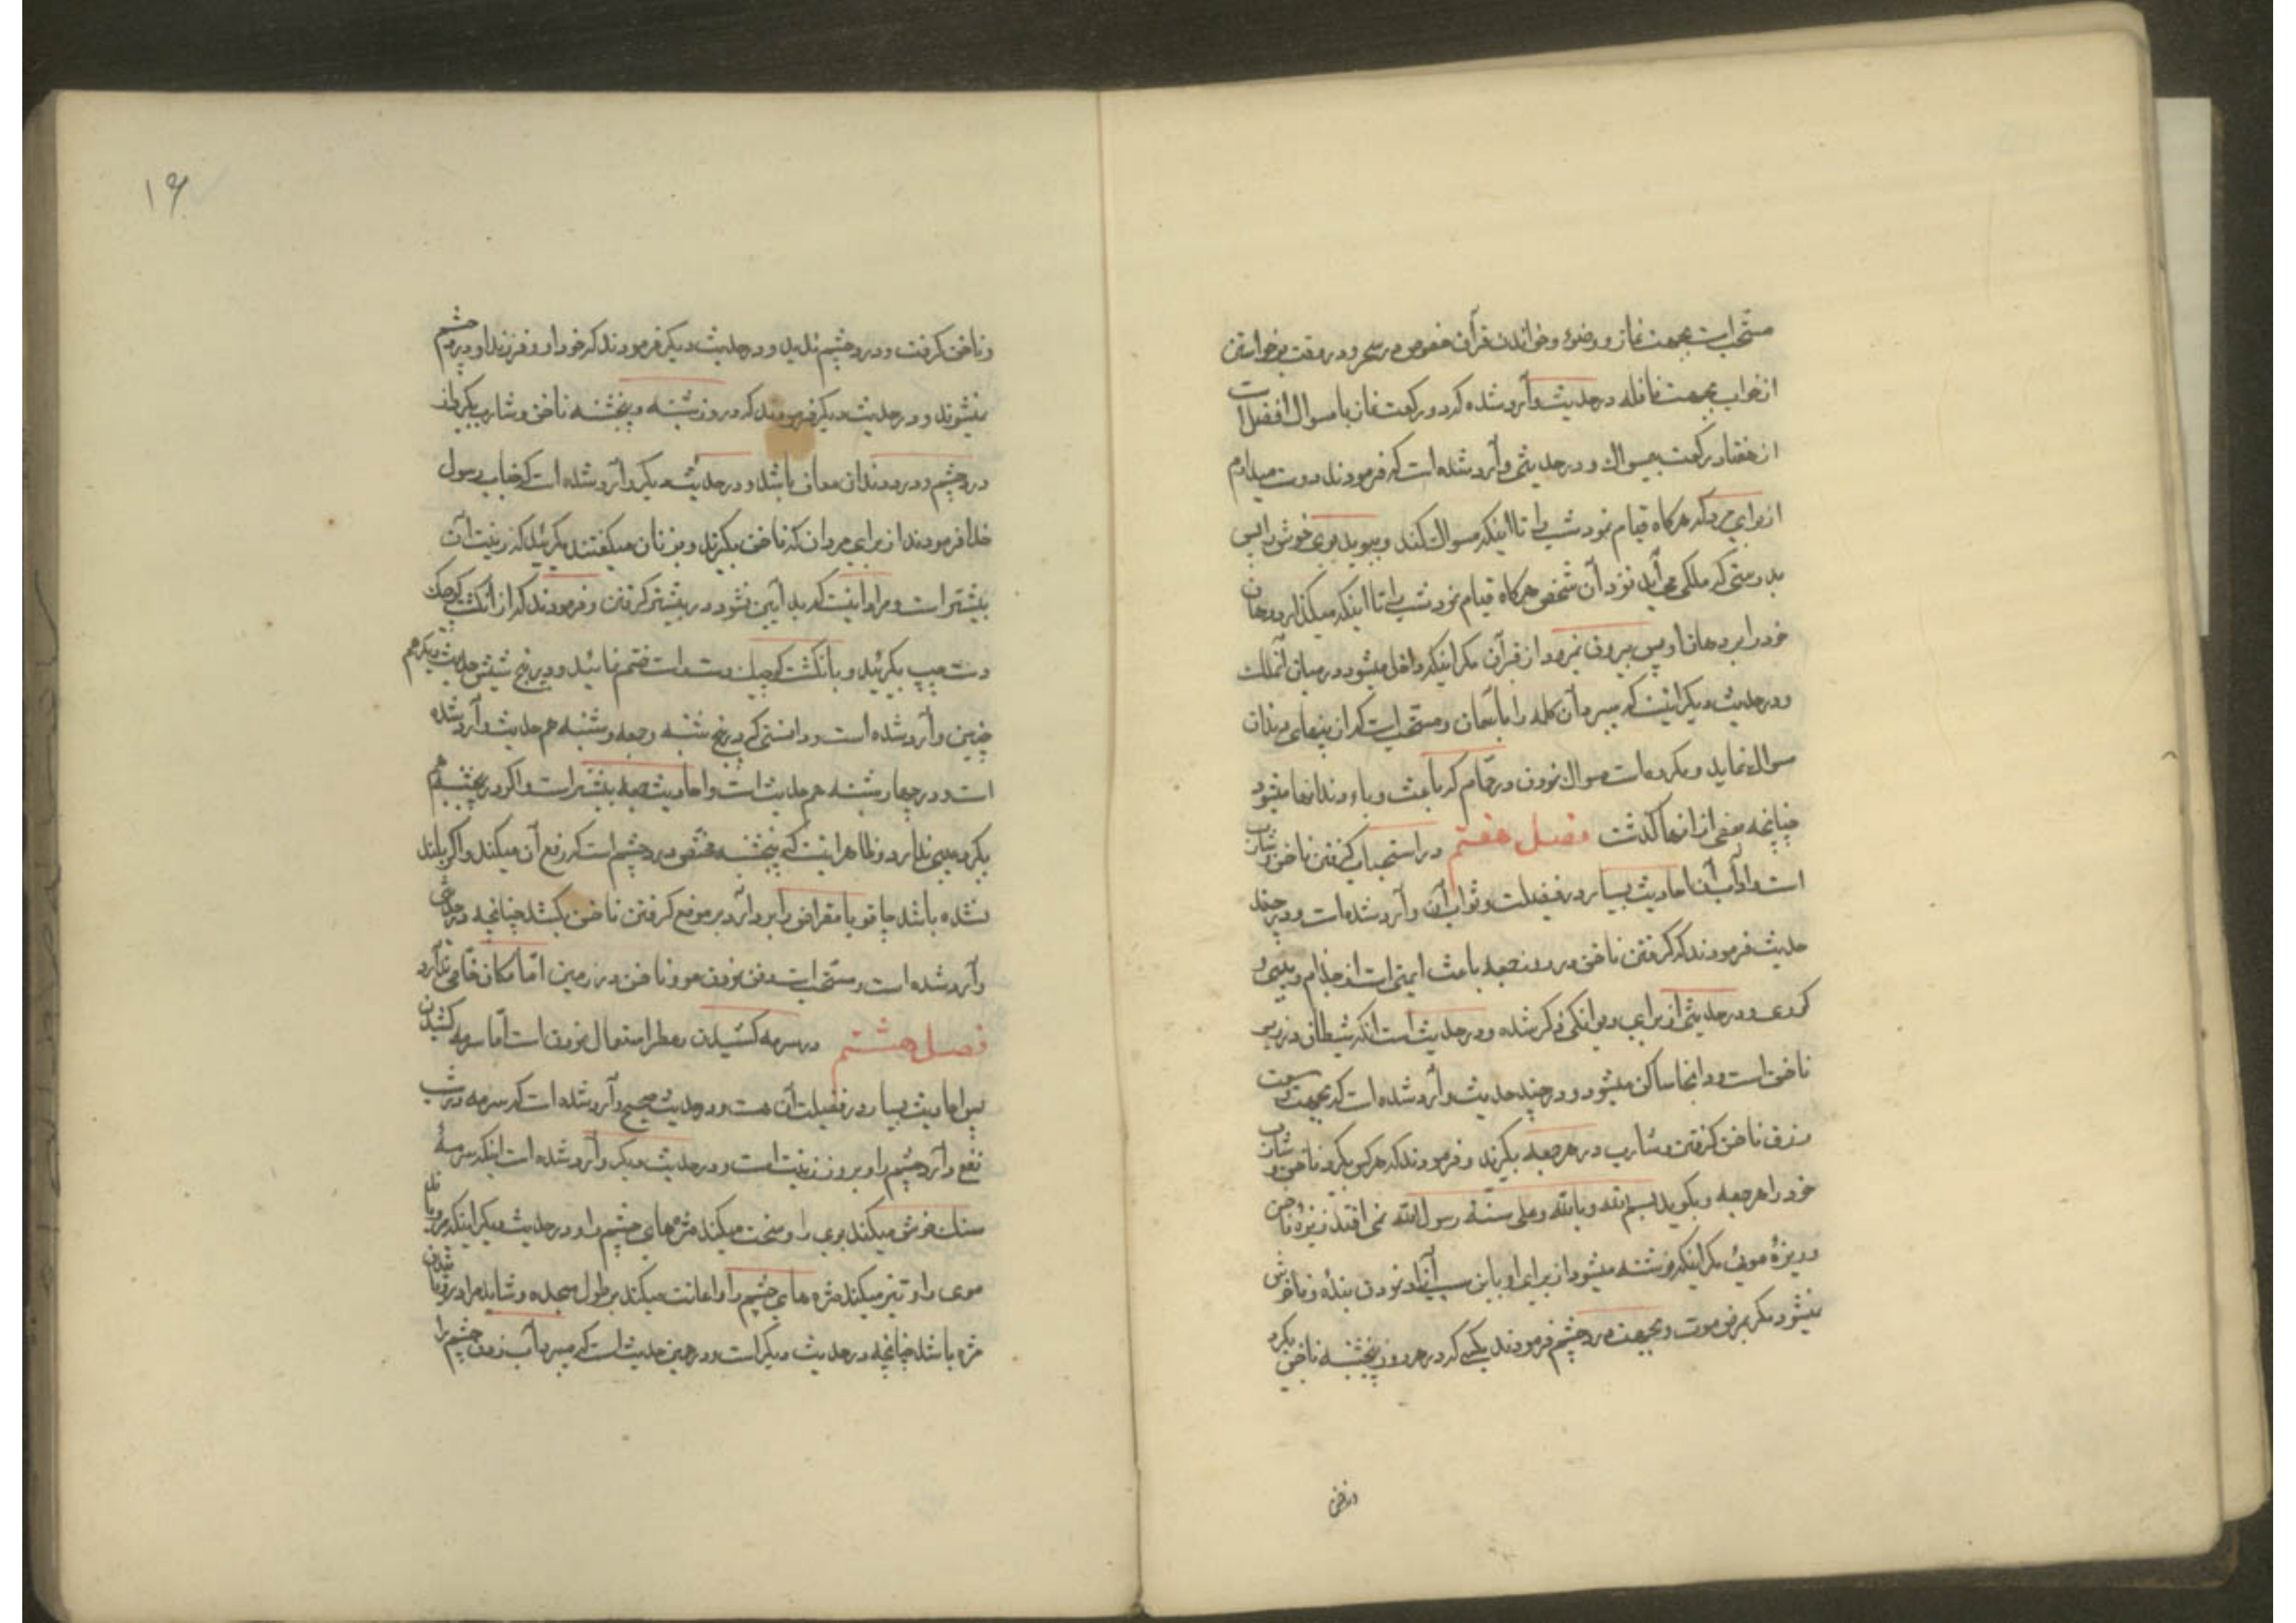 مستحب است بجهت نماز و وضوء و خواندن قرآن خصوص در سحر و در وقت برخواستن
از خواب بجهت نافله در حدیث وارد شده که دو رکعت نماز با مسواک افضل است
از هفتاد رکعت بیمسواک و در حدیثی وارد شده است که فرمودند دوست میدارم
از برای مرد که هرکاه قیام نمود شب را تا اینکه مسواک کند و ببوید بوی خوش را پس
بدرستی که ملکی می آید نزد آن شخص هرکاه قیام نمود شب را تا اینکه میکذارد دهان
خود را بر دهان او پس بیرون نمیرود از قرآن مکر اینکه داخل میشود در میان آنملک
و در حدیث دیکر اینست که میبرد آن کلمه را بآسمان و مستحب است که از پنهای دندان
مسواک نماید و مکروه است مسواک نمودن در حمام که باعث وباء دندانها میشود
چنانچه بعضی از انها کذشت فصل هفتم در استحباب کرفتن ناخن و شارب
است و آداب آن احادیث بسیار در فضیلت و ثواب آن وارد شده است و در چند
حدیث فرمودند که کرفتن ناخن در روز جمعه باعث ایمنی است از جذام و پیسی و
کوری و در حدیثی از برای دیوانکی ذکر شده و در حدیث است انکه شیطان در زیر
ناخن است و در انجا ساکن میشود و در چند حدیث وارد شده است که بجهت وسعت
رزق ناخن کرفتن و شارب در هر جمعه بکیرند و فرمودند که هر کس بکیرد ناخن و شارب
خود را هر جمعه و بکوید بسم الله و بالله و علی سنة رسول الله نمی افتد ریزهٔ ناخن
و ریزهٔ موئی مکر اینکه نوشته میشود از برای او باین سبب آزاد نمودن بنده و ناخوش
نمیشود مکر بمرض موت و بجهت درد چشم فرمودند بکسی که در هر روز پنجشنبه ناخن بکیرد
و ناخن کرفت و درد چشم ندید و در حدیث دیکر فرمودند که خود او و فرزند او درد چشم
نمیشوند و در حدیث دیکر فرمودند که در روز شنبه و پنجشنبه ناخن و شارب بکیرد از
درد چشم و درد دندان معاف باشد و در حدیث دیکر وارد شده است که جناب رسول
خدا فرمودند از برای مردان که ناخن بکیرند و بزنان میکفتند مکیرید که زینت آن
بیشتر است و مراد اینست که بد آیین نشود در بیشتر کرفتن و فرمودند که از انکشت کوچک
دست چپ بکیرید و بانکشت کوچک دست راست ختم نمائید و در پنج شش حدیث دیکر هم
چنین وارد شده است و دانستی که در پنج شنبه و جمعه و شنبه هم حدیث وارد شده
است و در چهارشنبه هم حدیث است و احادیث جمعه بیشتر است و اکر در پنجشنبه هم
بکیرد عیبی ندارد و ظاهر اینست که پنجشنبه مختص درد چشم است که رفع آن میکند و اکر بلند
نشده باشد چاقو یا مقراض را بردارد بر موضع کرفتن ناخن بکشد چنانچه در حدیثی
وارد شده است و مستحب است دفن نمودن مو و ناخن در زمین اما مکان خاصی ندارد
فصل هشتم در سرمه کشیدن و عطر استعمال نمودن است اما سرمه کشیدن
پس احادیث بسیار در فضیلت آن هست و در حدیث صحیح وارد شده است که سرمه در شب
نفع دارد چشم را و بروز زینت است و در حدیث دیکر وارد شده است اینکه سرمهٔ
سنک خوش میکند بوی را و سخت میکند مژه های چشم را و در حدیث دیکر اینکه میرویاند
موی را و تیز میکند مژه های چشم را و اعانت میکند بر طول سجده و شاید مراد رویانیدن
مژه باشد چنانچه در حدیث دیکر است و در همین حدیث است که میبرد آب زدن چشم را
در ناخن
۱۶